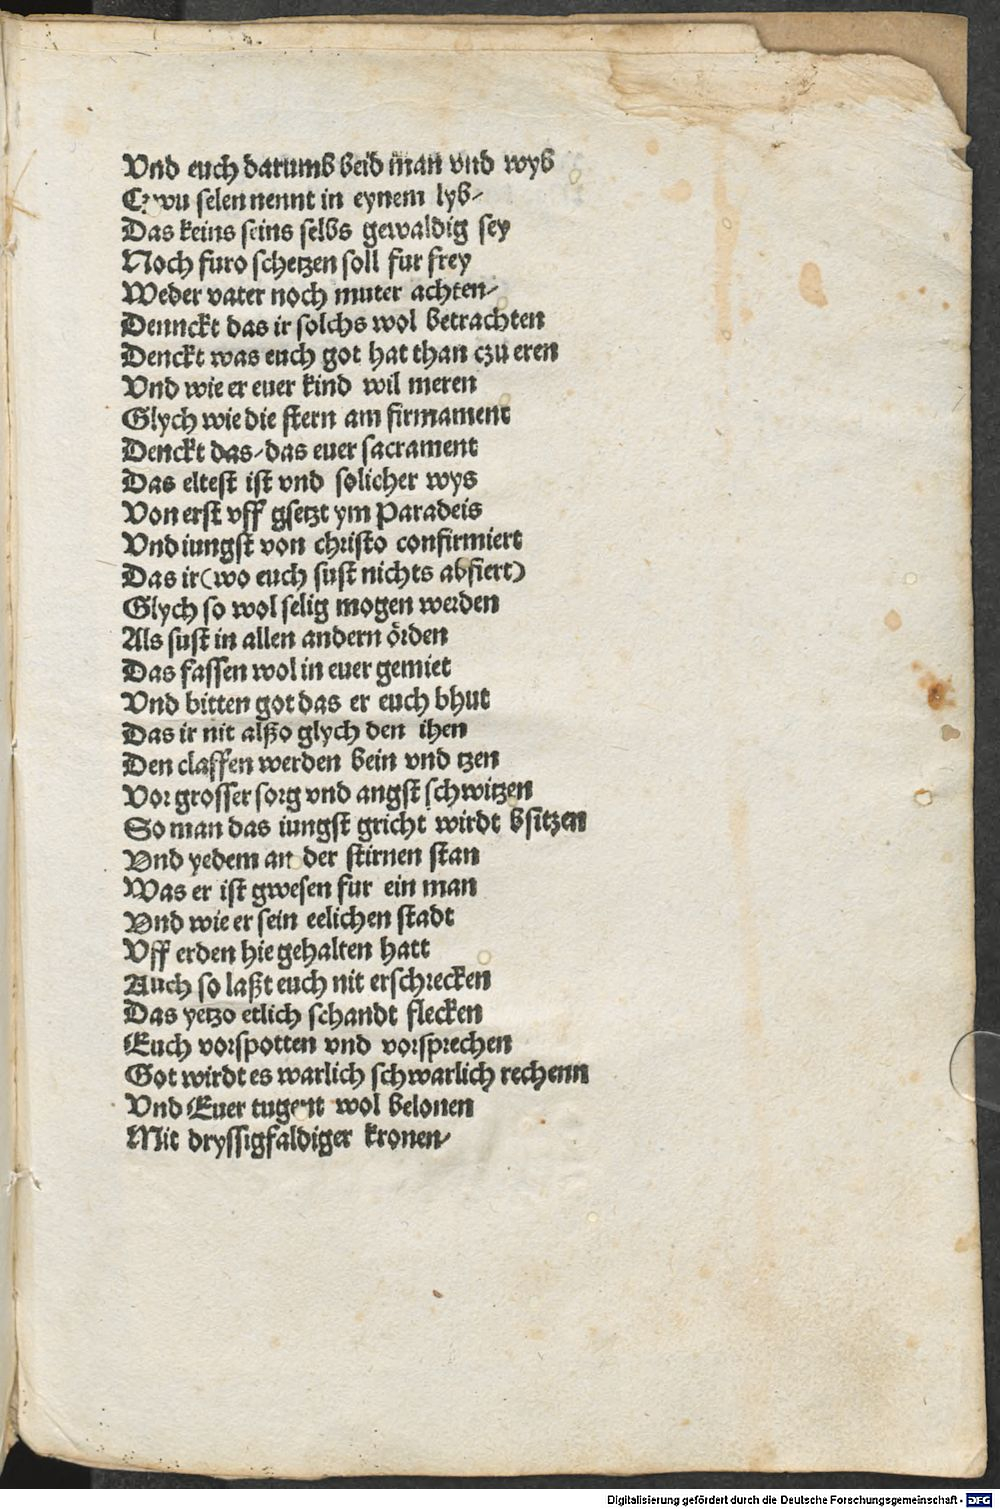 Vnd euch darumb beid man vnd wyb
Czwu selen nennt in eynem lyb/
Das keins seins selbs gewaldig sey
Noch furo schetzen soll fur frey
Weder vater noch muter achten/
Dennckt das ir solchs wol betrachten
Denckt was euch got hat than czu eren
Vnd wie er euer kind wil meren
Glych wie die stern am firmament
Denckt das/das euer sacrament
Das eltest ist vnd solicher wys
Von erst vff gsetzt ym Paradeis
Vnd iungst von christo confirmiert
Das ir(wo euch sust nichts abfiert)
Glych so wol selig mogen werden
Als sust in allen andern örden
Das fassen wol in euer gemiet
Vnd bitten got das er euch bhut
Das ir nit alßo glych den ihen
Den claffen werden bein vnd tzen
Vor grosser sorg vnd angst schwitzen
So man das iungst gricht wirdt bsitzen
Vnd yedem an der stirnen stan
Was er ist gwesen fur ein man
Vnd wie er sein eelichen stadt
Vff erden hie gehalten hatt
Auch so laßt euch nit erschrecken
Das yetzo etlich schandt flecken
Euch vorspotten vnd vorsprechen
Got wirdt es warlich schwarlich rechenn
Vnd Euer tugent wol belonen
Mit dryssigfaldiger kronen/
Digitalisierung gefördert durch die Deutsche Forschungsgemeinschaft - DFG